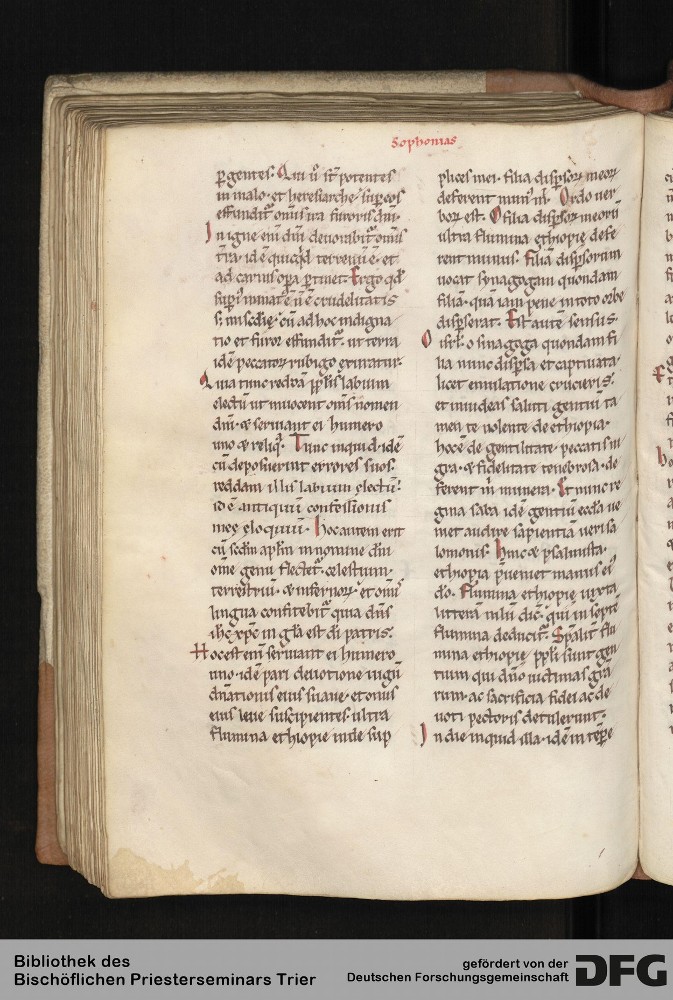 Sophonias
ꝑgentes. Qui ů st̄ potentes
in malo. et heresiarche sup eos
effundit᷑ om̄is ira furoris dn̄i.
In igne eni᷑ dn̄i devorabit᷑ om̄is
t̄ra. id ē quicq̇d terrenū ē. et
ad carnis oꝑa ꝑtinet. Ergo qđ
cū ad hoc indigna
tio et furor effundit᷑. ut terra
id ē peccatoꝝ rubigo
Quia tunc reddā pp̄lis labium
electū ut invocent om̄s nomen
dn̄i. & serviant ei humero
uno & reliq̇. Tunc inquid. id ē
cū deposuerint errores suos.
reddam illis labium electū.
id ē antiquū confessionis
mee eloquium. Hoc autem erit
cū scd̄m apl̄m in nomine dn̄i
om̄e genu flectet᷑. celestium.
terrestriū. & infernoꝝ. et om̄is
lingua confitebit᷑ quia dn̄s
ih̄c xp̄c in gl̄a est di᷑ patris.
Hoc est eni᷑ serviant ei humero
uno. id ē pari devotione iugū
dn̄ationis eius suave. et onus
eius leve suscipientes. ultra
flumina ethiopie inde sup
plices mei. filia dispsoꝝ meoꝝ
deferent mun᷒ m̄. Ordo ver
boꝝ est. O filia dispsoꝝ meorū
ultra flumina ethiopie defe
rent munus. Filiā dispsorum
vocat synagogam quondam
filiā. quā iam pene in toto orbe
dispserat. Est autē sensus.
O isrl̄. o sinagoga quondam fi
lia nunc dispsa et captivata.
licet emulatione crucieris.
et invideas saluti gentiū ta
men te volente de ethiopia.
hoc ē de gentilitate. peccatis ni
gra. & fidelitate tenebrosa. de
ferent m̄ munera. Et nunc re
gina saba id ē gentiū eccl̄a ve
niet audire sapientiā veri sa
lomonis. Hinc & psalmista.
ethiopia p̄veniet manus ei᷒
dō. Flumina ethiopie iuxta
litterā nilū dic̄. qui in septē
flumina deducit᷑. Sp̄alit̄ flu
mina ethiopie pp̄li sunt gen
tium qui dn̄o victimas gr̄a
rum. ac sacrificia fidei ac de
voti pectoris detulerunt.
In die inquid illa. id ē in tēpe
Bibliothek des
Bischöflichen Priesterseminars Trier
gefördert von der
Deutschen Forschungsgemeinschaft
DFG